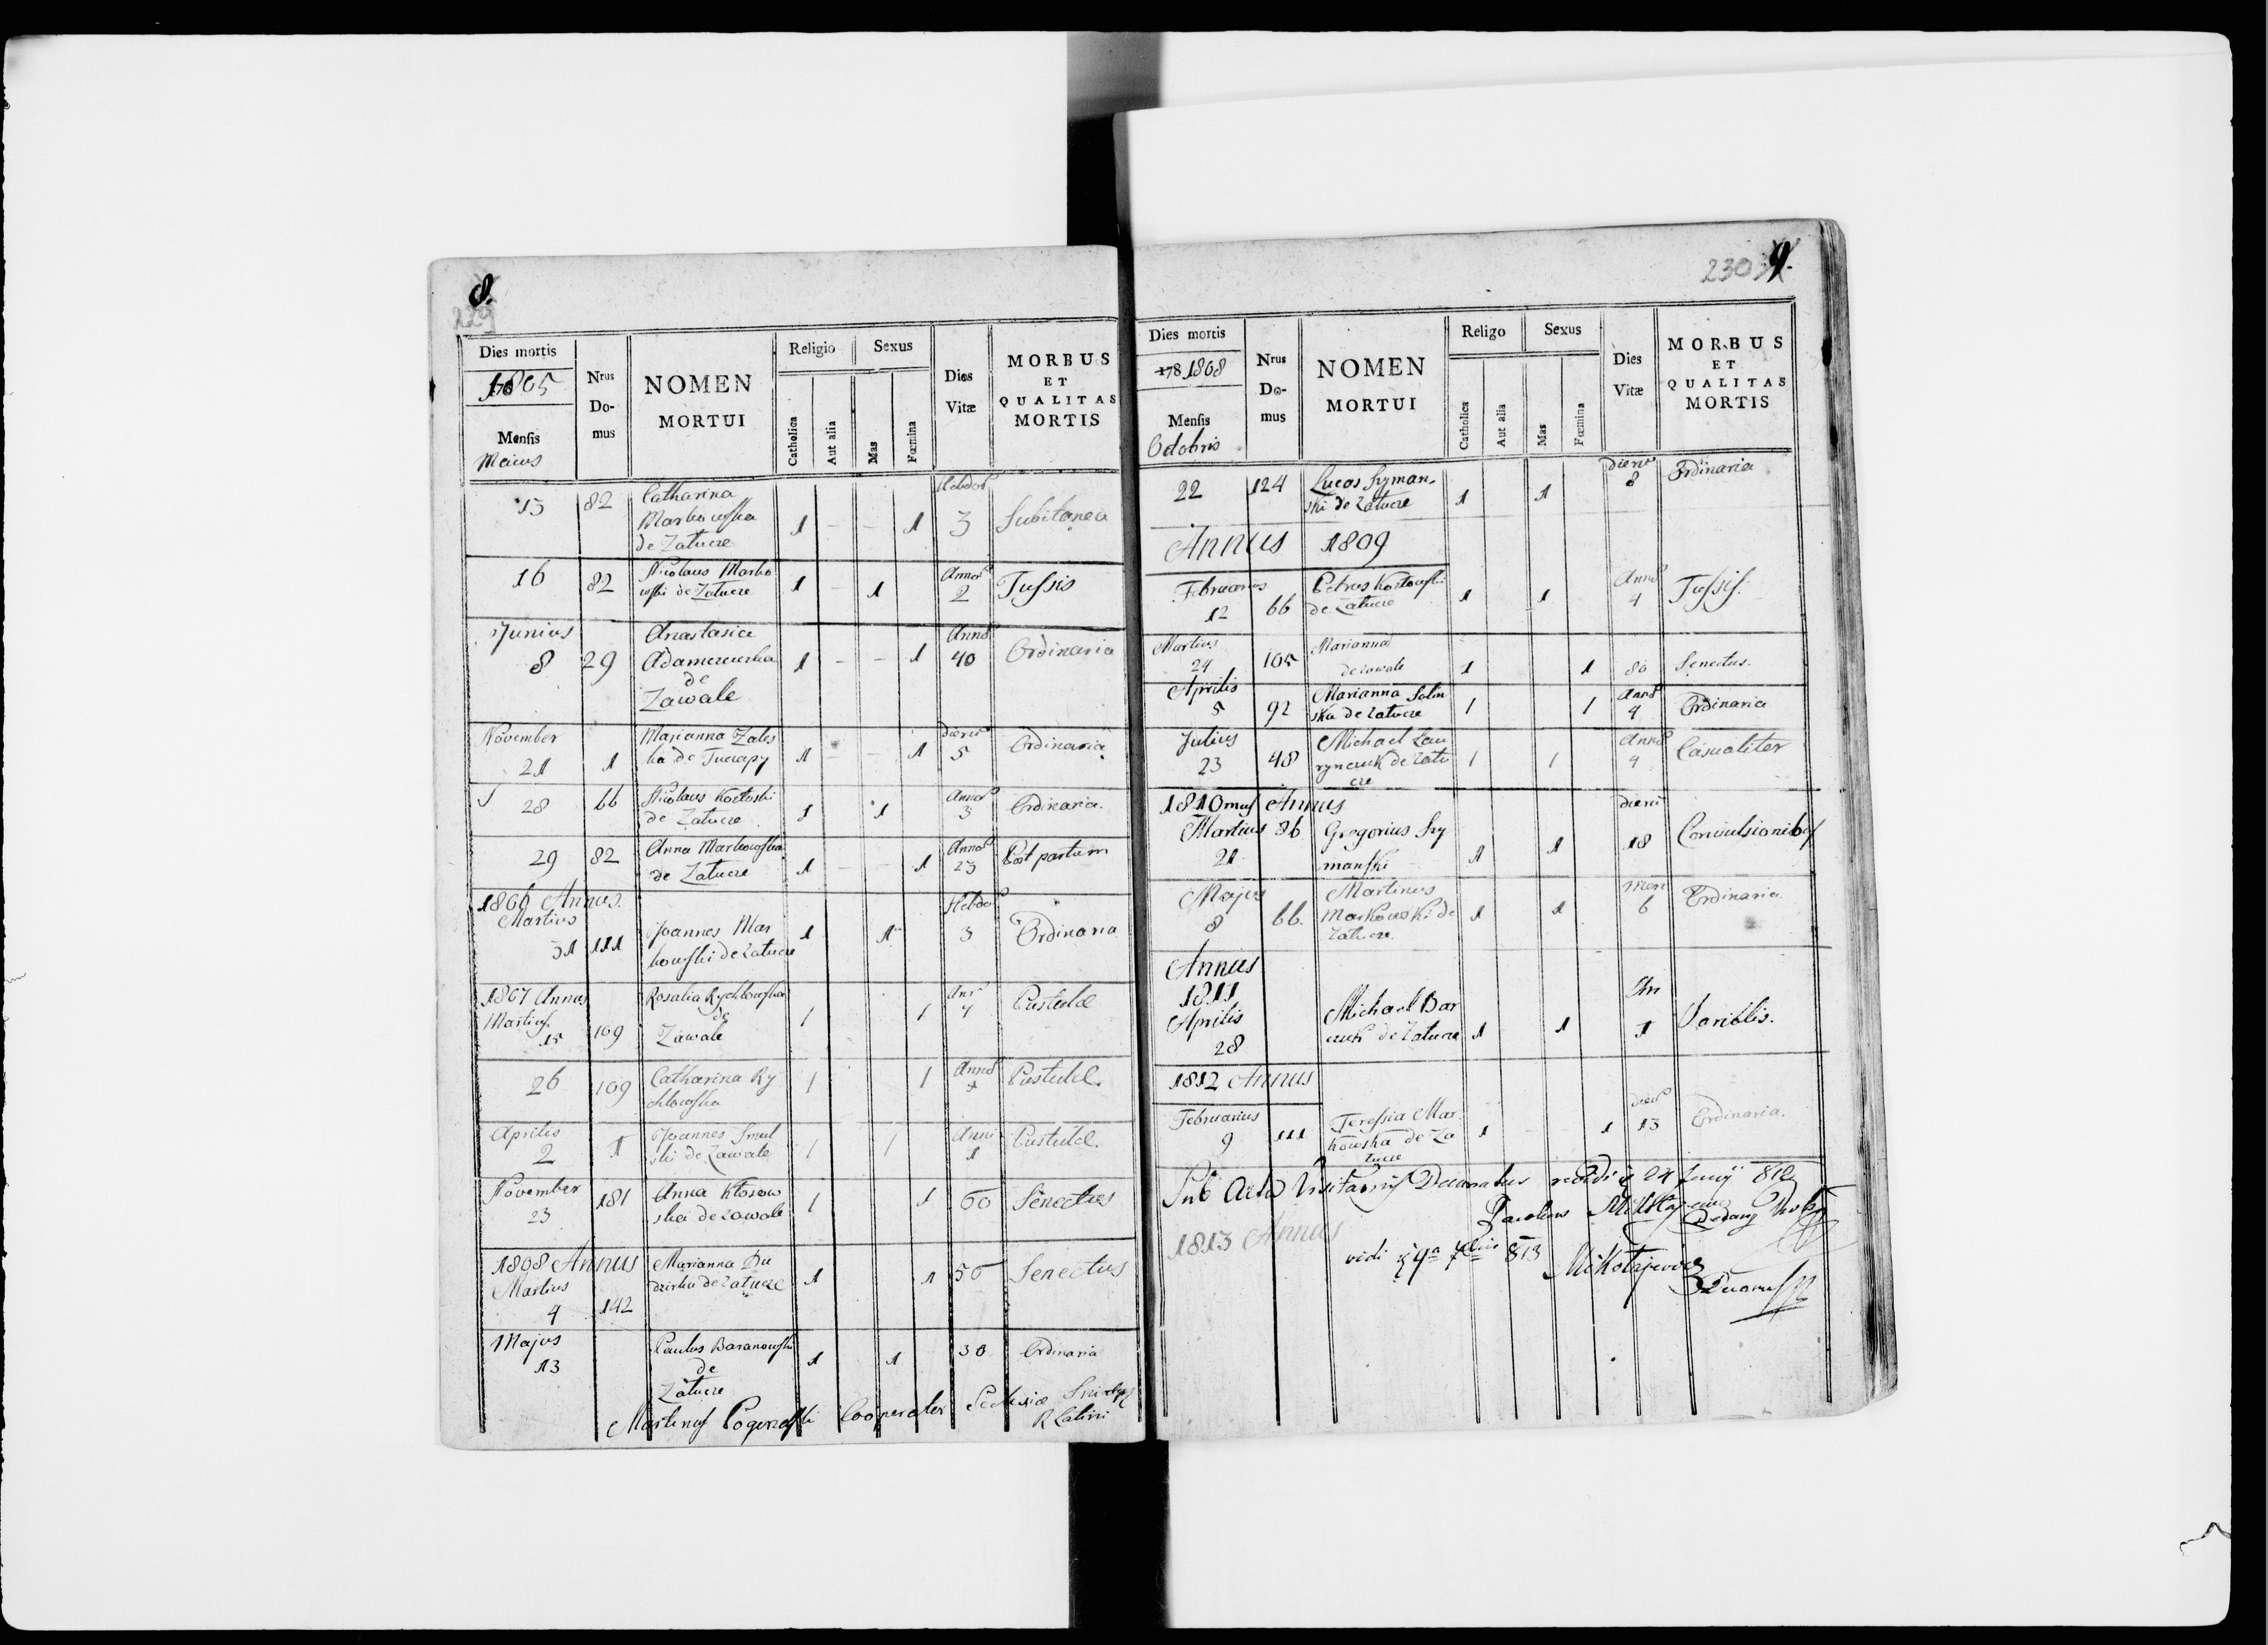 8.
229
Dies mortis
1805
Mensis
Maius
Nrus
Do-
mus
NOMEN
MORTUI
Religio
Catholica
Aut alia
Sexus
Mas
Fœmina
Dies
Vitæ
MORBUS
ET
QUALITAS
MORTIS
13 82 Catharina
Markowska
de Zatucze 1 - - 1 Hebdod 3 Subitanea
16 82 Nicolaus Marko
wski de Zatucze 1 - 1 Annor 2 Tussis
Junius
8 29 Anastasia
Adamczewska
de
Zawale 1 - - 1 Anno 40 Ordinaria
November
21 1 Marianna Zales
ka de Tuczapy 1 - - 1 dierū 5 Ordinaria
28 66 Nicolaus Kozłoski
de Zatucze 1 1 Annor 3 Ordinaria.
29 82 Anna Markowska
de Zatucze 1 - - 1 Anno 23 Post partum
1806 Annus.
Martius
31 111 Joannes Mar
kowski de Zatucze 1 1 Hebdo 3 Ordinaria
1807 Annus
Martius
15 109 Rosalia Rychlowska
de
Zawale 1 1 Anr 7 Pustulæ
26 109 Catharina Ry
chlowska 1 1 Anno 1 Pustulæ.
Aprilis
2 1 Joannes Smul
ski de Zawale 1 1 Anni 1 Pustulæ.
November
23 181 Anna Kłosow
ska de Zawale 1 1 60 Senectus
1808 Annus
Martius
4 142 Marianna Du
dzirka de Zatucze 1 1 50 Senectus
Majus
13 Paulus Baranowski
de
Zatucze 1 1 30 Ordinaria
Martinus Cooperator Ecclesiæ
R Latini
2303
9.
Dies mortis
178 1808
Mensis
Octobris
Nrus
Do-
mus
NOMEN
MORTUI
Religo
Catholica
Aut alia
Sexus
Mas
Fœmina
Dies
Vitæ
MORBUS
ET
QUALITAS
MORTIS
22 124 Lucas Szyman-
ski de Zatucze 1 1 Dierū 8 Ordinaria
Annus 1809
Februarius
12 66 Petrus Kozłowski
de Zatucze 1 1 Anno 4 Tussis.
Martius
24 105 Marianna
de Zawale 1 1 80 Senectus.
Aprilis
5 92 Marianna Solin
ska de Zatucze 1 1 Anno 4 Ordinaria
Julius
23 48 Michael Lau
rynczuk de Zatu
cze 1 1 Anno 4 Casualiter
1810mus Annus
Martius
21 86 Gregorius Szy
manski 1 1 dierū 18 Convulsionibus
Majus
8 66. Martinus
Markowski de
Zatucze. 1 1 Men 6 Ordinaria.
Annus
1811
Aprilis
28 Michael Bar
czuk de Zatucze 1 1 An 1 Variolis.
1812 Annus
Februarius
9 111 Teressia Mar
kowska de Za
tucze 1 - - 1 dierū 13 Ordinaria.
Sub Actu Visitationis Decanatus vidi 24 Junij 812
1813 Annus
vidi 813 Mikołajewicz